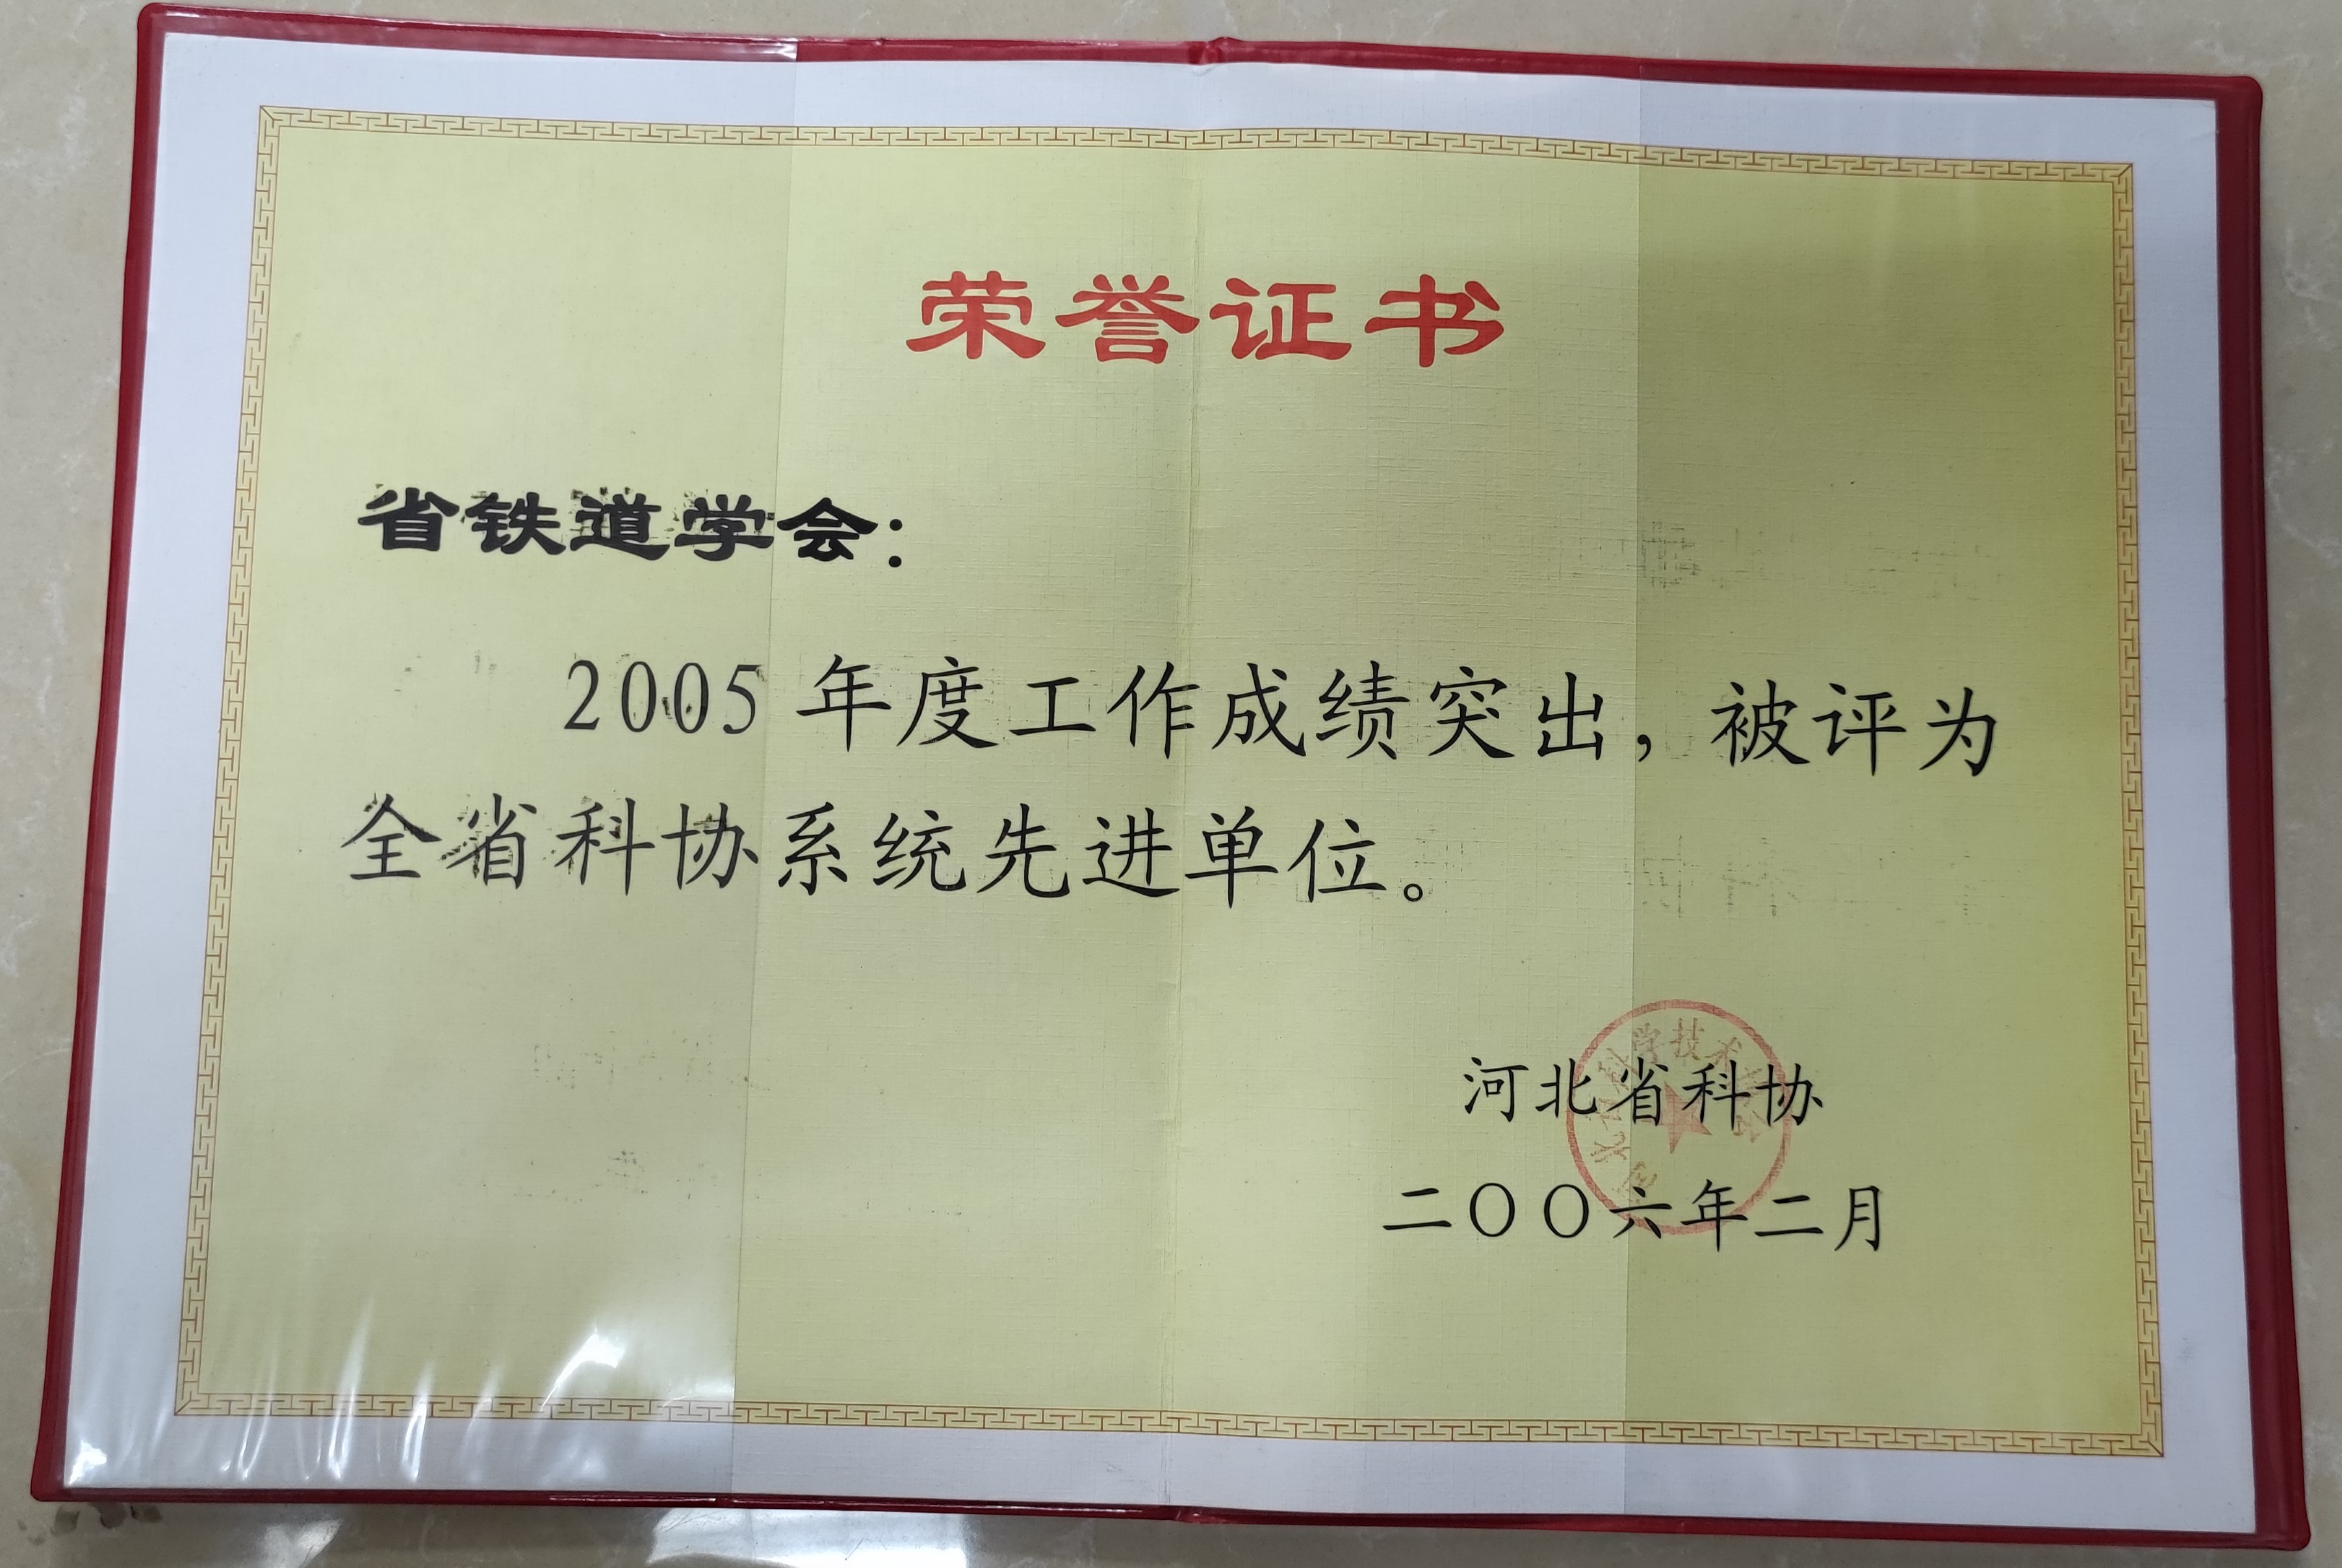 荣誉证书
省铁道学会：
2005年度工作成绩突出，被评为
全省科协系统先进单位。
河北省科协
二〇〇六年二月